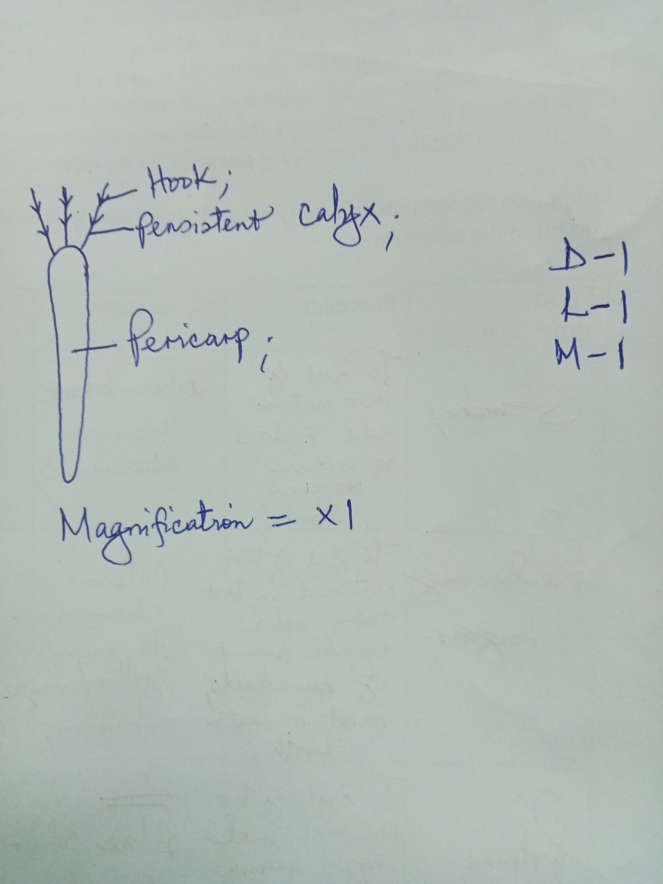 Hook;
Persistent calyx;
D-1
L-1
Pericarp;
M-1
Magnification = x1